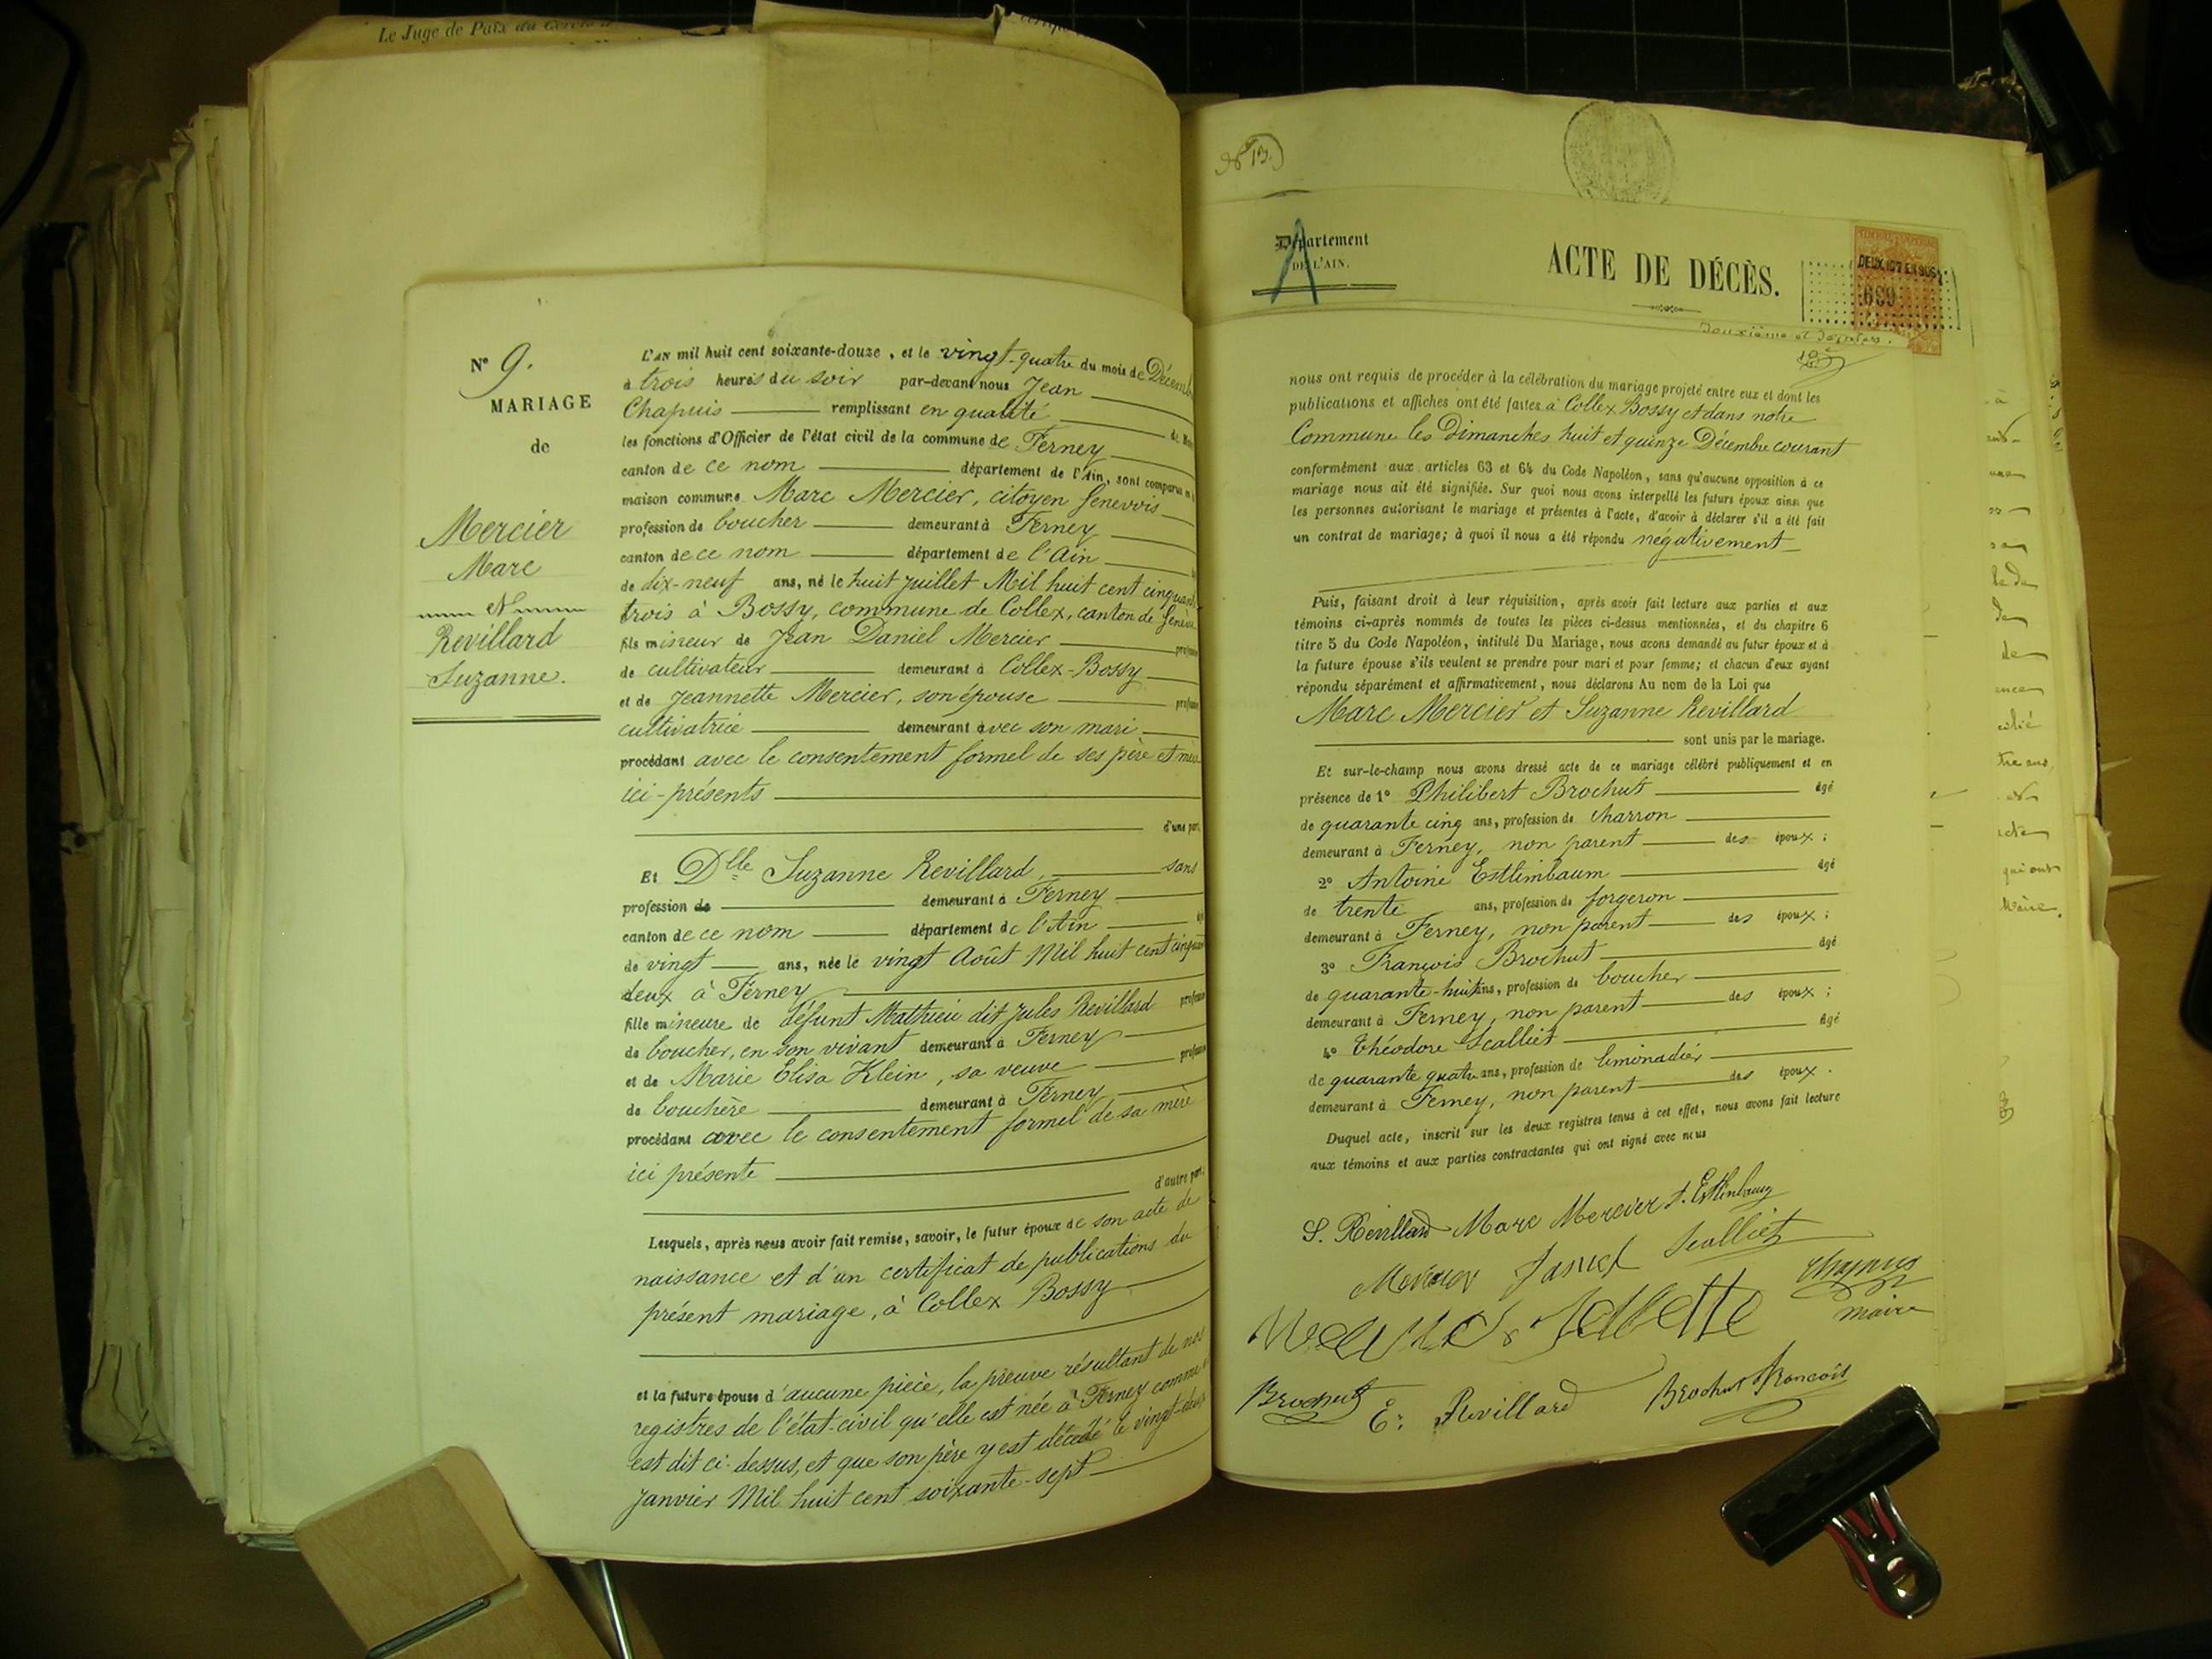 Le Juge de Paix du Cercle
N° 9.
MARIAGE
de
Mercier
Marc
Et
Revillard
Suzanne.
L'AN mil huit cent soixante-douze, et le vingt-quatre du mois de Décemb
à trois heures du soir par-devant nous Jean
Chapuis remplissant en qualité de
les fonctions d'Officier de l'état civil de la commune de Ferney
canton de ce nom département de l'Ain, sont comparus en
maison commune Marc Mercier, citoyen Genevois
profession de boucher demeurant à Ferney
canton de ce nom département de l'Ain
de dix-neuf ans, né le huit juillet Mil huit cent cinquante
trois à Bossy, commune de Collex, canton de Genève
fils mineur de Jean Daniel Mercier profession
de cultivateur demeurant à Collex-Bossy
et de Jeannette Mercier, son épouse profession
cultivatrice demeurant avec son mari
procédant avec le consentement formel de ses père et mère
ici-présents
d'une part,
Et Dlle Suzanne Revillard, sans
profession de demeurant à Ferney
canton de ce nom département de l'Ain
de vingt ans, née le vingt Août Mil huit cent cinquante
deux à Ferney
fille mineure de défunt Mathieu dit Jules Revillard profession
de boucher, en son vivant demeurant à Ferney
et de Marie Elisa Klein, sa veuve profession
de bouchère demeurant à Ferney
procédant avec le consentement formel de sa mère
ici présente
d'autre part;
Lesquels, après nous avoir fait remise, savoir, le futur époux de son acte de
naissance et d'un certificat de publications du
présent mariage, à Collex Bossy
et la future épouse d'aucune pièce, la preuve résultant de nos
registres de l'état-civil qu'elle est née à Ferney comme il
est dit ci-dessus, et que son père y est décédé le vingt-deux
janvier Mil huit cent soixante-sept
N° 13.
Département
DE L'AIN.
A
ACTE DE DÉCÈS.
DEUX 10es EN SUS
699
Deuxième et dernier.
nous ont requis de procéder à la célébration du mariage projeté entre eux et dont les
publications et affiches ont été faites à Collex Bossy et dans notre
Commune les Dimanches huit et quinze Décembre courant
conformément aux articles 63 et 64 du Code Napoléon, sans qu'aucune opposition à ce
mariage nous ait été signifiée. Sur quoi nous avons interpellé les futurs époux ainsi que
les personnes autorisant le mariage et présentes à l'acte, d'avoir à déclarer s'il a été fait
un contrat de mariage; à quoi il nous a été répondu négativement
Puis, faisant droit à leur réquisition, après avoir fait lecture aux parties et aux
témoins ci-après nommés de toutes les pièces ci-dessus mentionnées, et du chapitre 6
titre 5 du Code Napoléon, intitulé Du Mariage, nous avons demandé au futur époux et à
la future épouse s'ils veulent se prendre pour mari et pour femme; et chacun d'eux ayant
répondu séparément et affirmativement, nous déclarons Au nom de la Loi que
Marc Mercier et Suzanne Revillard
sont unis par le mariage.
Et sur-le-champ nous avons dressé acte de ce mariage célébré publiquement et en
présence de 1° Philibert Brochut âgé
de quarante cinq ans, profession de charron
demeurant à Ferney, non parent des époux;
2° Antoine Estlimbaum âgé
de trente ans, profession de forgeron
demeurant à Ferney, non parent des époux;
3° François Brochut âgé
de quarante-huit ans, profession de boucher
demeurant à Ferney, non parent des époux;
4° Théodore Scalliet âgé
de quarante quatre ans, profession de limonadier
demeurant à Ferney, non parent des époux.
Duquel acte, inscrit sur les deux registres tenus à cet effet, nous avons fait lecture
aux témoins et aux parties contractantes qui ont signé avec nous
S. Revillard Marc Mercier A. Estlinbaum
Mercier Daniel Scalliet
Chapuis
maire
Brochut E. Revillard Brochut François